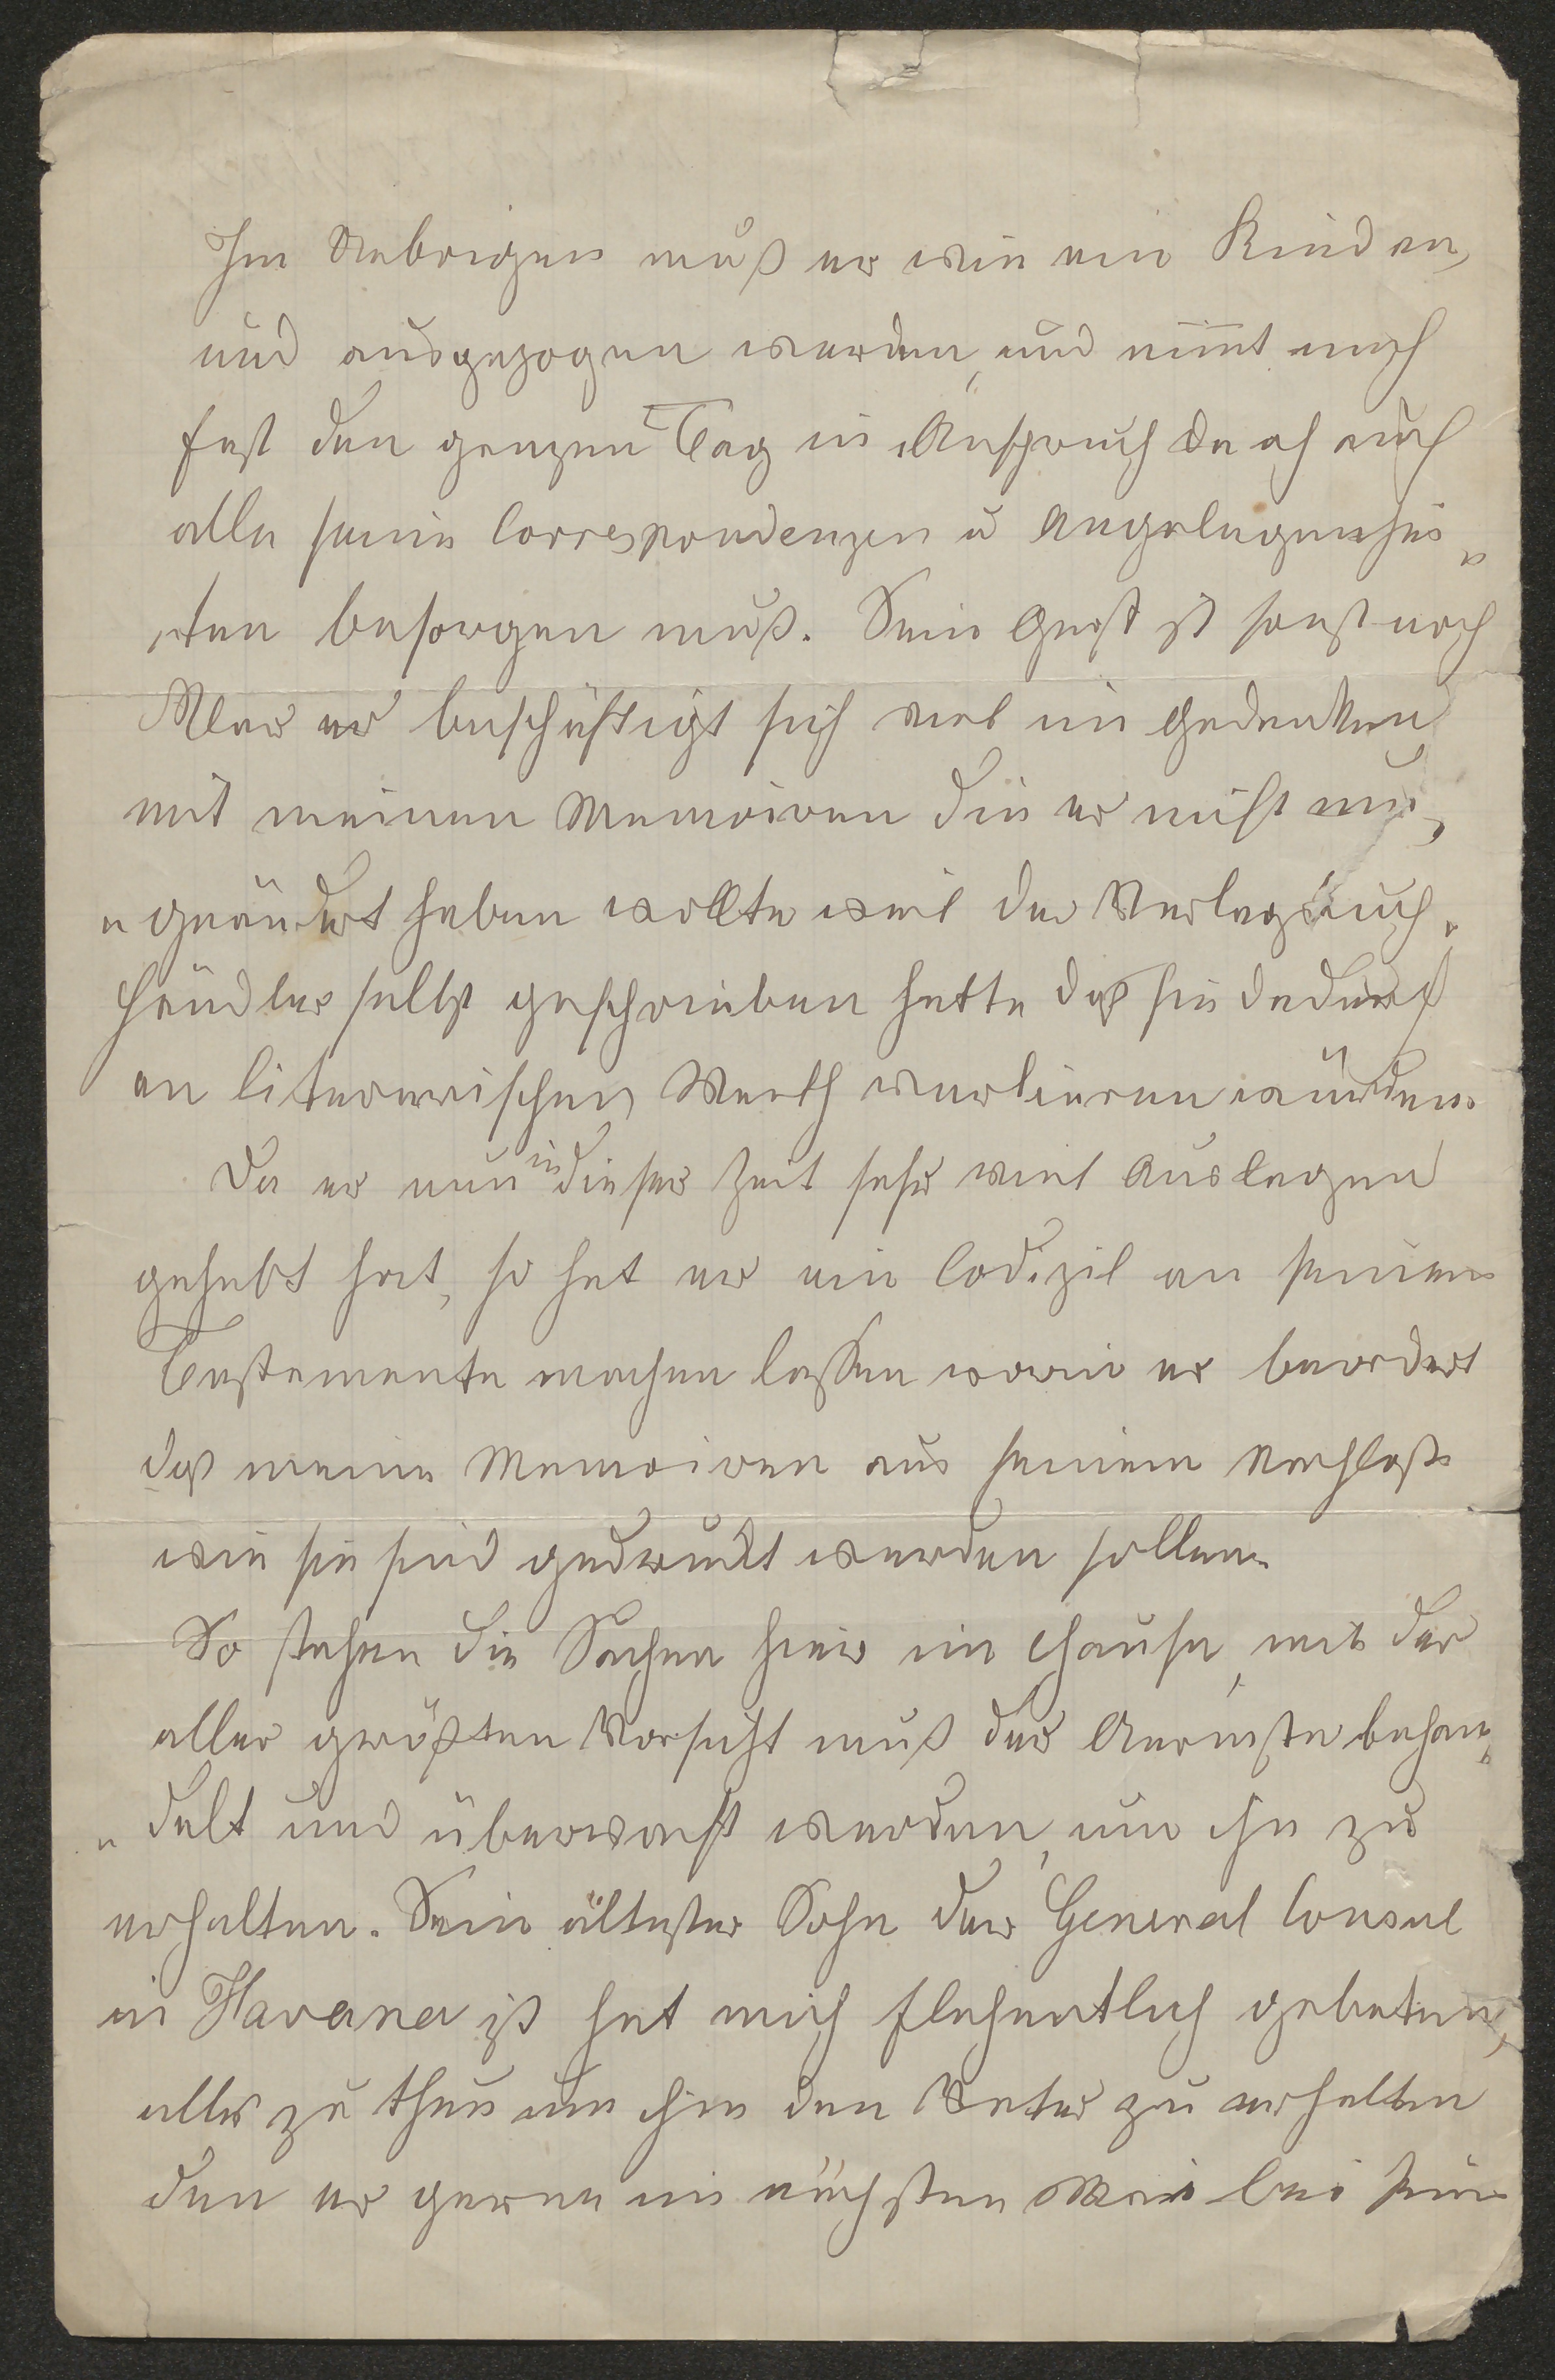 Im Uebrigen muß er wie ein Kind an,
und ausgezogen werden, und nimt mich
fast den ganzen Tag in Anspruch da ich auch
alle seine Correspondenzen u Angelegenhei„
„ten besorgen muß. Sein Geist ist sonst noch
klar er beschäftigt sich viel in Gedanken
mit meinen Memoiren die er nicht um„
„geändert haben wollte weil der Verlagsbuch„
händler selbst geschrieben hatte daß sie dadurch
an literarischen Werth verlieren würden.
Da er nun in dieser Zeit sehr viel Auslagen
gehabt hat, so hat er ein Codizil an seinem
Testamente machen lassen worin er beordert
daß meine Memoiren aus seinem Nachlaß
wie sie sind gedruckt werden sollen.
So stehen die Sachen hier im Hause, mit der
aller größten Vorsicht muß der Aermste behan„
„delt und überwacht werden, um ihn zu
erhalten. Sein ältester Sohn der General Consul
in Havana ist hat mich flehentlich gebeten,
alles zu thun um ihm den Vater zu erhalten
den er gerne im nächsten Mai bei sein